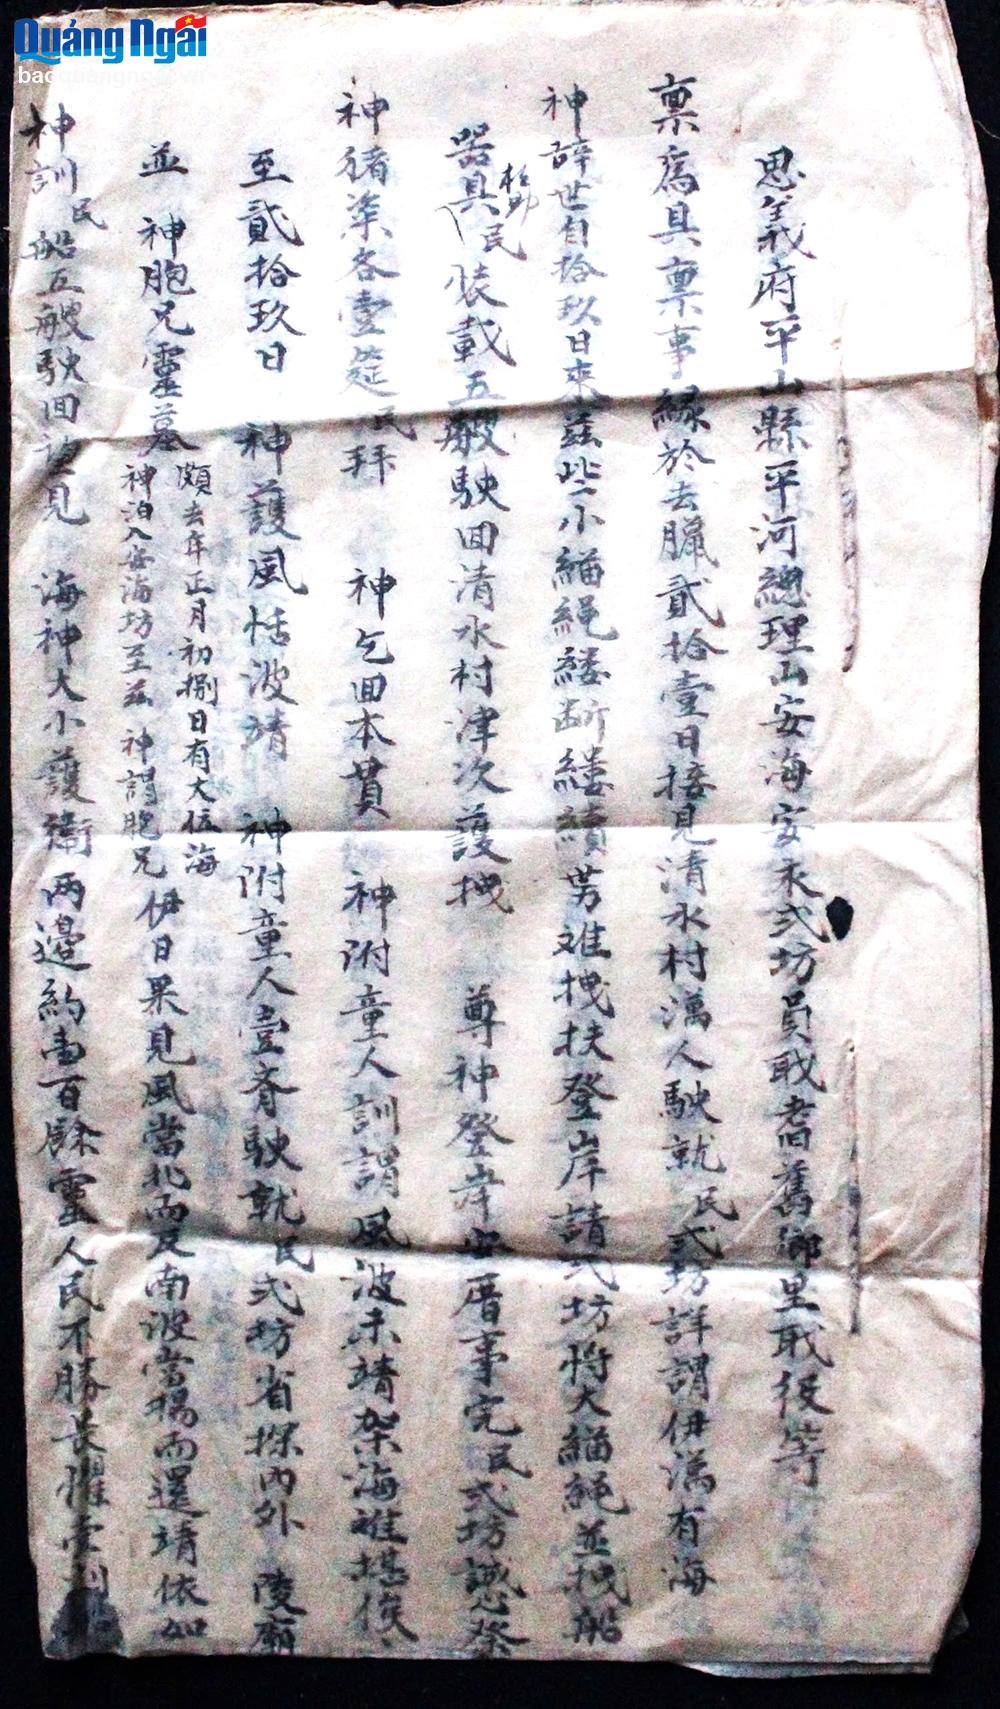 Quảng Ngãi
baoquangngai.vn
思義府平山縣平河總理山安海安永弍坊員耿耆舊鄉里耿役等
稟爲具稟事緣於去臘貳拾壹日接見清水村漁人駛就民弍坊詳謂伊漁有海
神辭世自拾玖日來茲些小緇繩縷斷縷續勢难拽扶登岸請弍坊將大緇繩並扺船
器具
松助
民裝載五艘駛回清水村津次護拽 尊神登岸安厝事完民弍坊誠心祭
神猪粢各壹筵民拜 神乞回本貫 神附童人訓謂風波未靖架海难堪俟
至貳拾玖日 神護風恬波靖 神附童人壹齊駛就民弍坊省探內外陵廟
並 神胞兄靈墓
頗去年正月初捌日有大位海
神泊入安海坊至茲神謂胞兄
伊日果見風當北而反南波當揚而還靖依如
神訓民船五艘駛回 見 海神大小護衛兩邊約壹百餘靈人民不勝長惟